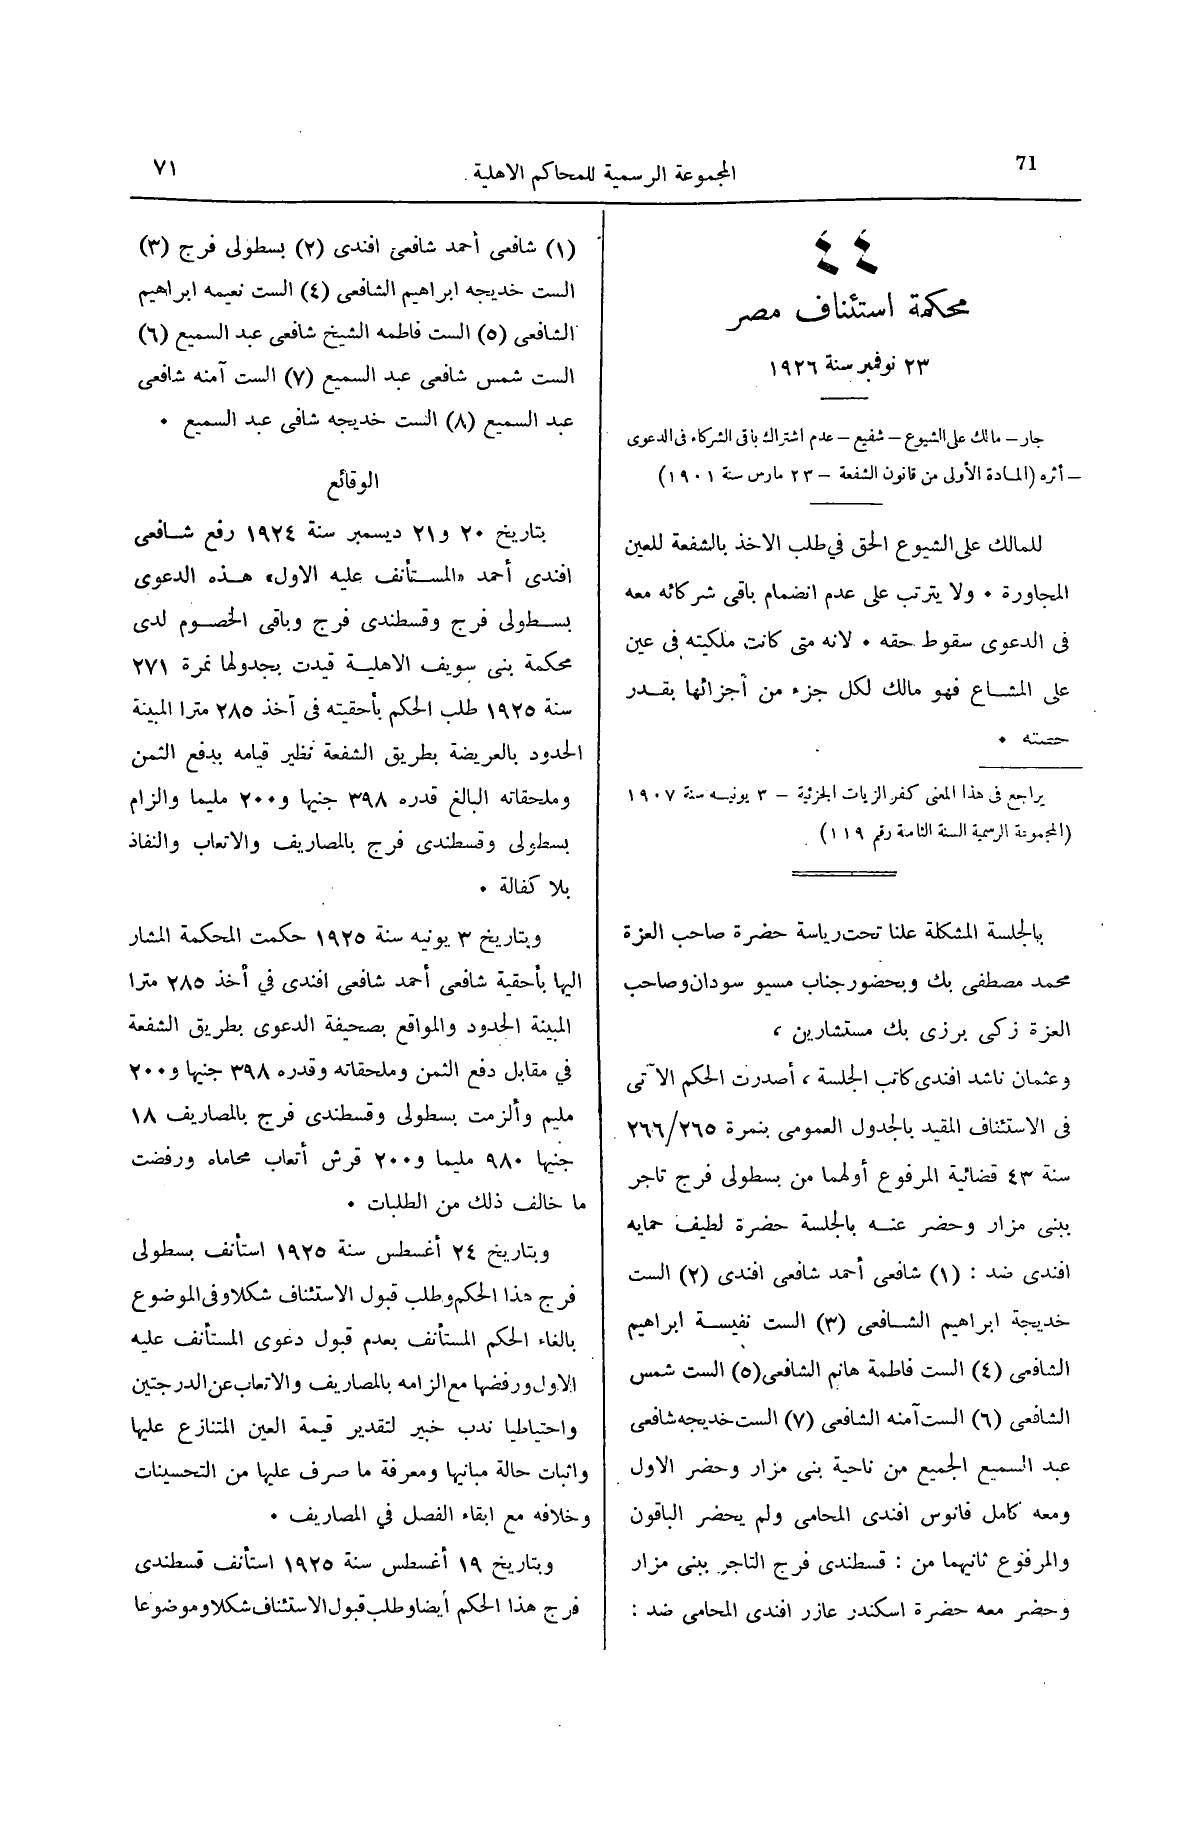 71
المجموعة الرسمية للمحاكم الاهلية
٧١
٤٤
محكمة استئناف مصر
٢٣ نوفمبر سنة ١٩٢٦
جار – مالك على الشيوع – شفيع – عدم اشتراك باقى الشركاء فى الدعوى
– أثره (المادة الأولى من قانون الشفعة – ٢٣ مارس سنة ١٩٠١)
للمالك على الشيوع الحق فى طلب الاخذ بالشفعة للعين
المجاورة ٠ ولا يترتب على عدم انضمام باقى شركائه معه
فى الدعوى سقوط حقه ٠ لانه متى كانت ملكيته فى عين
على المشاع فهو مالك لكل جزء من أجزائها بقدر
حصته ٠
يراجع فى هذا المعنى كفر الزيات الجزئية – ٣ يونيه سنة ١٩٠٧
(المجموعة الرسمية السنة الثامنة رقم ١١٩)
بالجلسة المشكلة علنا تحت رياسة حضرة صاحب العزة
محمد مصطفى بك وبحضور جناب مسيو سودان وصاحب
العزة زكى برزى بك مستشارين ،
وعثمان ناشد افندى كاتب الجلسة ، أصدرت الحكم الآتى
فى الاستئناف المقيد بالجدول العمومى بنمرة ٢٦٥/٢٦٦
سنة ٤٣ قضائية المرفوع أولهما من بسطولى فرج تاجر
ببنى مزار وحضر عنه بالجلسة حضرة لطيف حمايه
افندى ضد : (١) شافعى أحمد شافعى افندى (٢) الست
خديجة ابراهيم الشافعى (٣) الست نفيسة ابراهيم
الشافعى (٤) الست فاطمة هانم الشافعى (٥) الست شمس
الشافعى (٦) الست آمنه الشافعى (٧) الست خديجه شافعى
عبد السميع الجميع من ناحية بنى مزار وحضر الاول
ومعه كامل فانوس افندى المحامى ولم يحضر الباقون
والمرفوع ثانيهما من : قسطندى فرج التاجر ببنى مزار
وحضر معه حضرة اسكندر عازر افندى المحامى ضد :
(١) شافعى أحمد شافعى افندى (٢) بسطولى فرج (٣)
الست خديجه ابراهيم الشافعى (٤) الست نعيمه ابراهيم
الشافعى (٥) الست فاطمه الشيخ شافعى عبد السميع (٦)
الست شمس شافعى عبد السميع (٧) الست آمنه شافعى
عبد السميع (٨) الست خديجه شافى عبد السميع ٠
الوقائع
بتاريخ ٢٠ و٢١ ديسمبر سنة ١٩٢٤ رفع شافعى
افندى أحمد «المستأنف عليه الاول» هذه الدعوى
بسطولى فرج وقسطندى فرج وباقى الخصوم لدى
محكمة بنى سويف الاهلية قيدت بجدولها نمرة ٢٧١
سنة ١٩٢٥ طلب الحكم بأحقيته فى أخذ ٢٨٥ مترا المبينة
الحدود بالعريضة بطريق الشفعة نظير قيامه بدفع الثمن
وملحقاته البالغ قدره ٣٩٨ جنيها و٢٠٠ مليما والزام
بسطولى وقسطندى فرج بالمصاريف والاتعاب والنفاذ
بلا كفالة ٠
وبتاريخ ٣ يونيه سنة ١٩٢٥ حكمت المحكمة المشار
اليها بأحقية شافعى أحمد شافعى افندى في أخذ ٢٨٥ مترا
المبينة الحدود والمواقع بصحيفة الدعوى بطريق الشفعة
في مقابل دفع الثمن وملحقاته وقدره ٣٩٨ جنيها و٢٠٠
مليم وألزمت بسطولى وقسطندى فرج بالمصاريف ١٨
جنيها ٩٨٠ مليما و٢٠٠ قرش أتعاب محاماه ورفضت
ما خالف ذلك من الطلبات ٠
وبتاريخ ٢٤ أغسطس سنة ١٩٢٥ استأنف بسطولى
فرج هذا الحكم وطلب قبول الاستئناف شكلا وفى الموضوع
بالغاء الحكم المستأنف بعدم قبول دعوى المستأنف عليه
الاول ورفضها مع الزامه بالمصاريف والاتعاب عن الدرجتين
واحتياطيا ندب خبير لتقدير قيمة العين المتنازع عليها
واثبات حالة مبانيها ومعرفة ما صرف عليها من التحسينات
وخلافه مع ابقاء الفصل في المصاريف ٠
وبتاريخ ١٩ أغسطس سنة ١٩٢٥ استأنف قسطندى
فرج هذا الحكم أيضا وطلب قبول الاستئناف شكلا وموضوعا